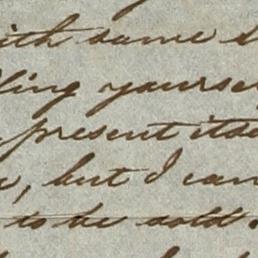 ith some s
ling yourse
present itse
, but I can
to be sold.